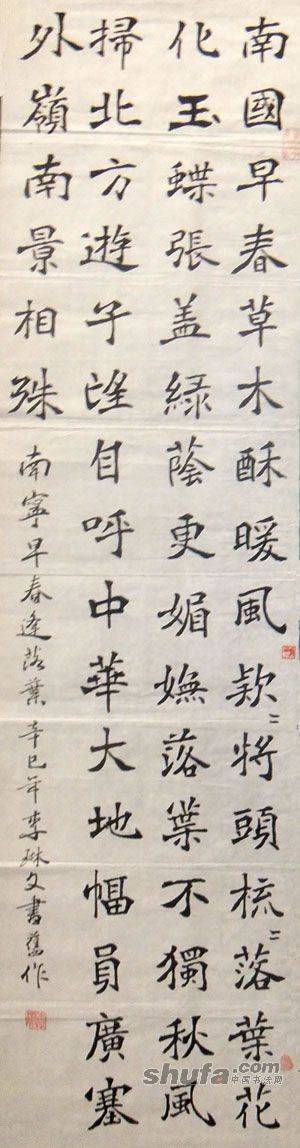 南國早春草木酥暖風款〻將頭梳〻落葉花
化玉蝶張盖綠蔭更媚嫵落葉不獨秋風
掃北方遊子望自呼中華大地幅員廣塞
外嶺南景相殊
南寧早春逢落葉辛巳年李琳文書舊作
shufa.com
中国书法网